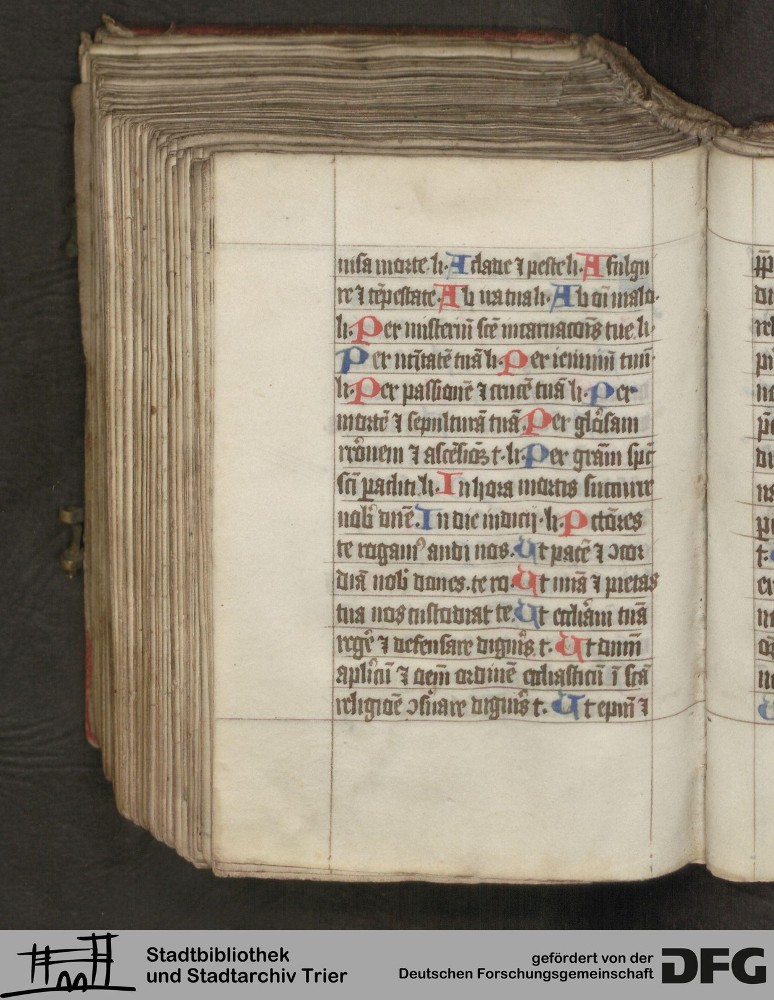 uisa morte.li. A clade ⁊ peste li. A fulgu
re ⁊ tēpestate. Ab ira tua li. Ab oī malo.
li. Per misteriū scē incarnacōis tue. li.
Per natītatē tuā li. Per ieiuniū tuū
li. Per passionē ⁊ crucē tuā li. Per
mortē ⁊ sepulturā tuā. Per glōsam
ascēsiōꝫ t. li. Per grām spūs
scī paclitī. li. In hora mortis succurre
nob dnē. In die iudicij. li. Pctōres
te rogamꝰ audi nos. Ut pacē ⁊ ɔcor
diā nob dones. te ro. Ut mīa ⁊ pietas
tua nos custodiat te. Ut eccliam tuā
regē ⁊ defensare digneris t. Ut dnm
aplicū ⁊ oēm ordinē ecclīasticū ī scā
religiōē ɔseruare digneris t. Ut epm̄ ⁊
Stadtbibliothek
und Stadtarchiv Trier
gefördert von der
Deutschen Forschungsgemeinschaft
DFG